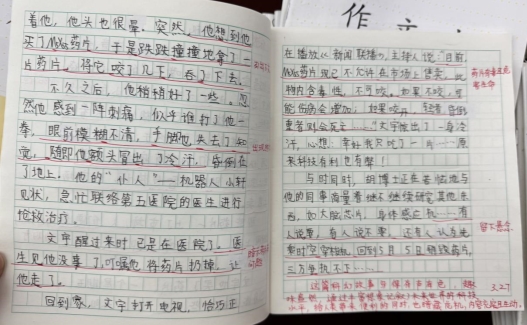 着他，他头也很晕。突然，他想到他
买了M  药片，于是跌跌撞撞地拿了一
片药片，将它咬了几下，吞了下去。
不久之后，他稍稍好了一些。忽
然他感到一阵刺痛，似乎谁打了他一
拳，眼前模糊不清，手脚也失去了知
觉，随即他额头冒出了冷汗，昏倒在
了地上。他的“仆人”——机器人小轩
见状，急忙联络第五医院的医生进行
抢救治疗。
文宇醒过来时已是在医院了。医
生见他没事了，叮嘱他将药片扔掉，让
他走了。
回到家，文宇打开电视，恰巧正
作
在播放《新闻联播》，主持人说：“目前，
药片现已不允许在市场上售卖，此
物内含毒性，不可咬，如果不咬，可
能伤病会增加；如果咬开，轻者昏倒
重者则会死亡……”文宇吓出了一身冷
汗，心想：幸好我只吃了一片……原
来科技有利也有弊！
与此同时，胡博士正在苦恼地与
他的同事商量着继不继续研究其他东
西，如大脑芯片，身体感应机……有
人说要，有人说不要，还有人认为先
乘时空穿梭机，回到3月5日销毁药片，
三方坚执不下……
留下悬念
这篇科幻故事写得有声有色，趣
3.27